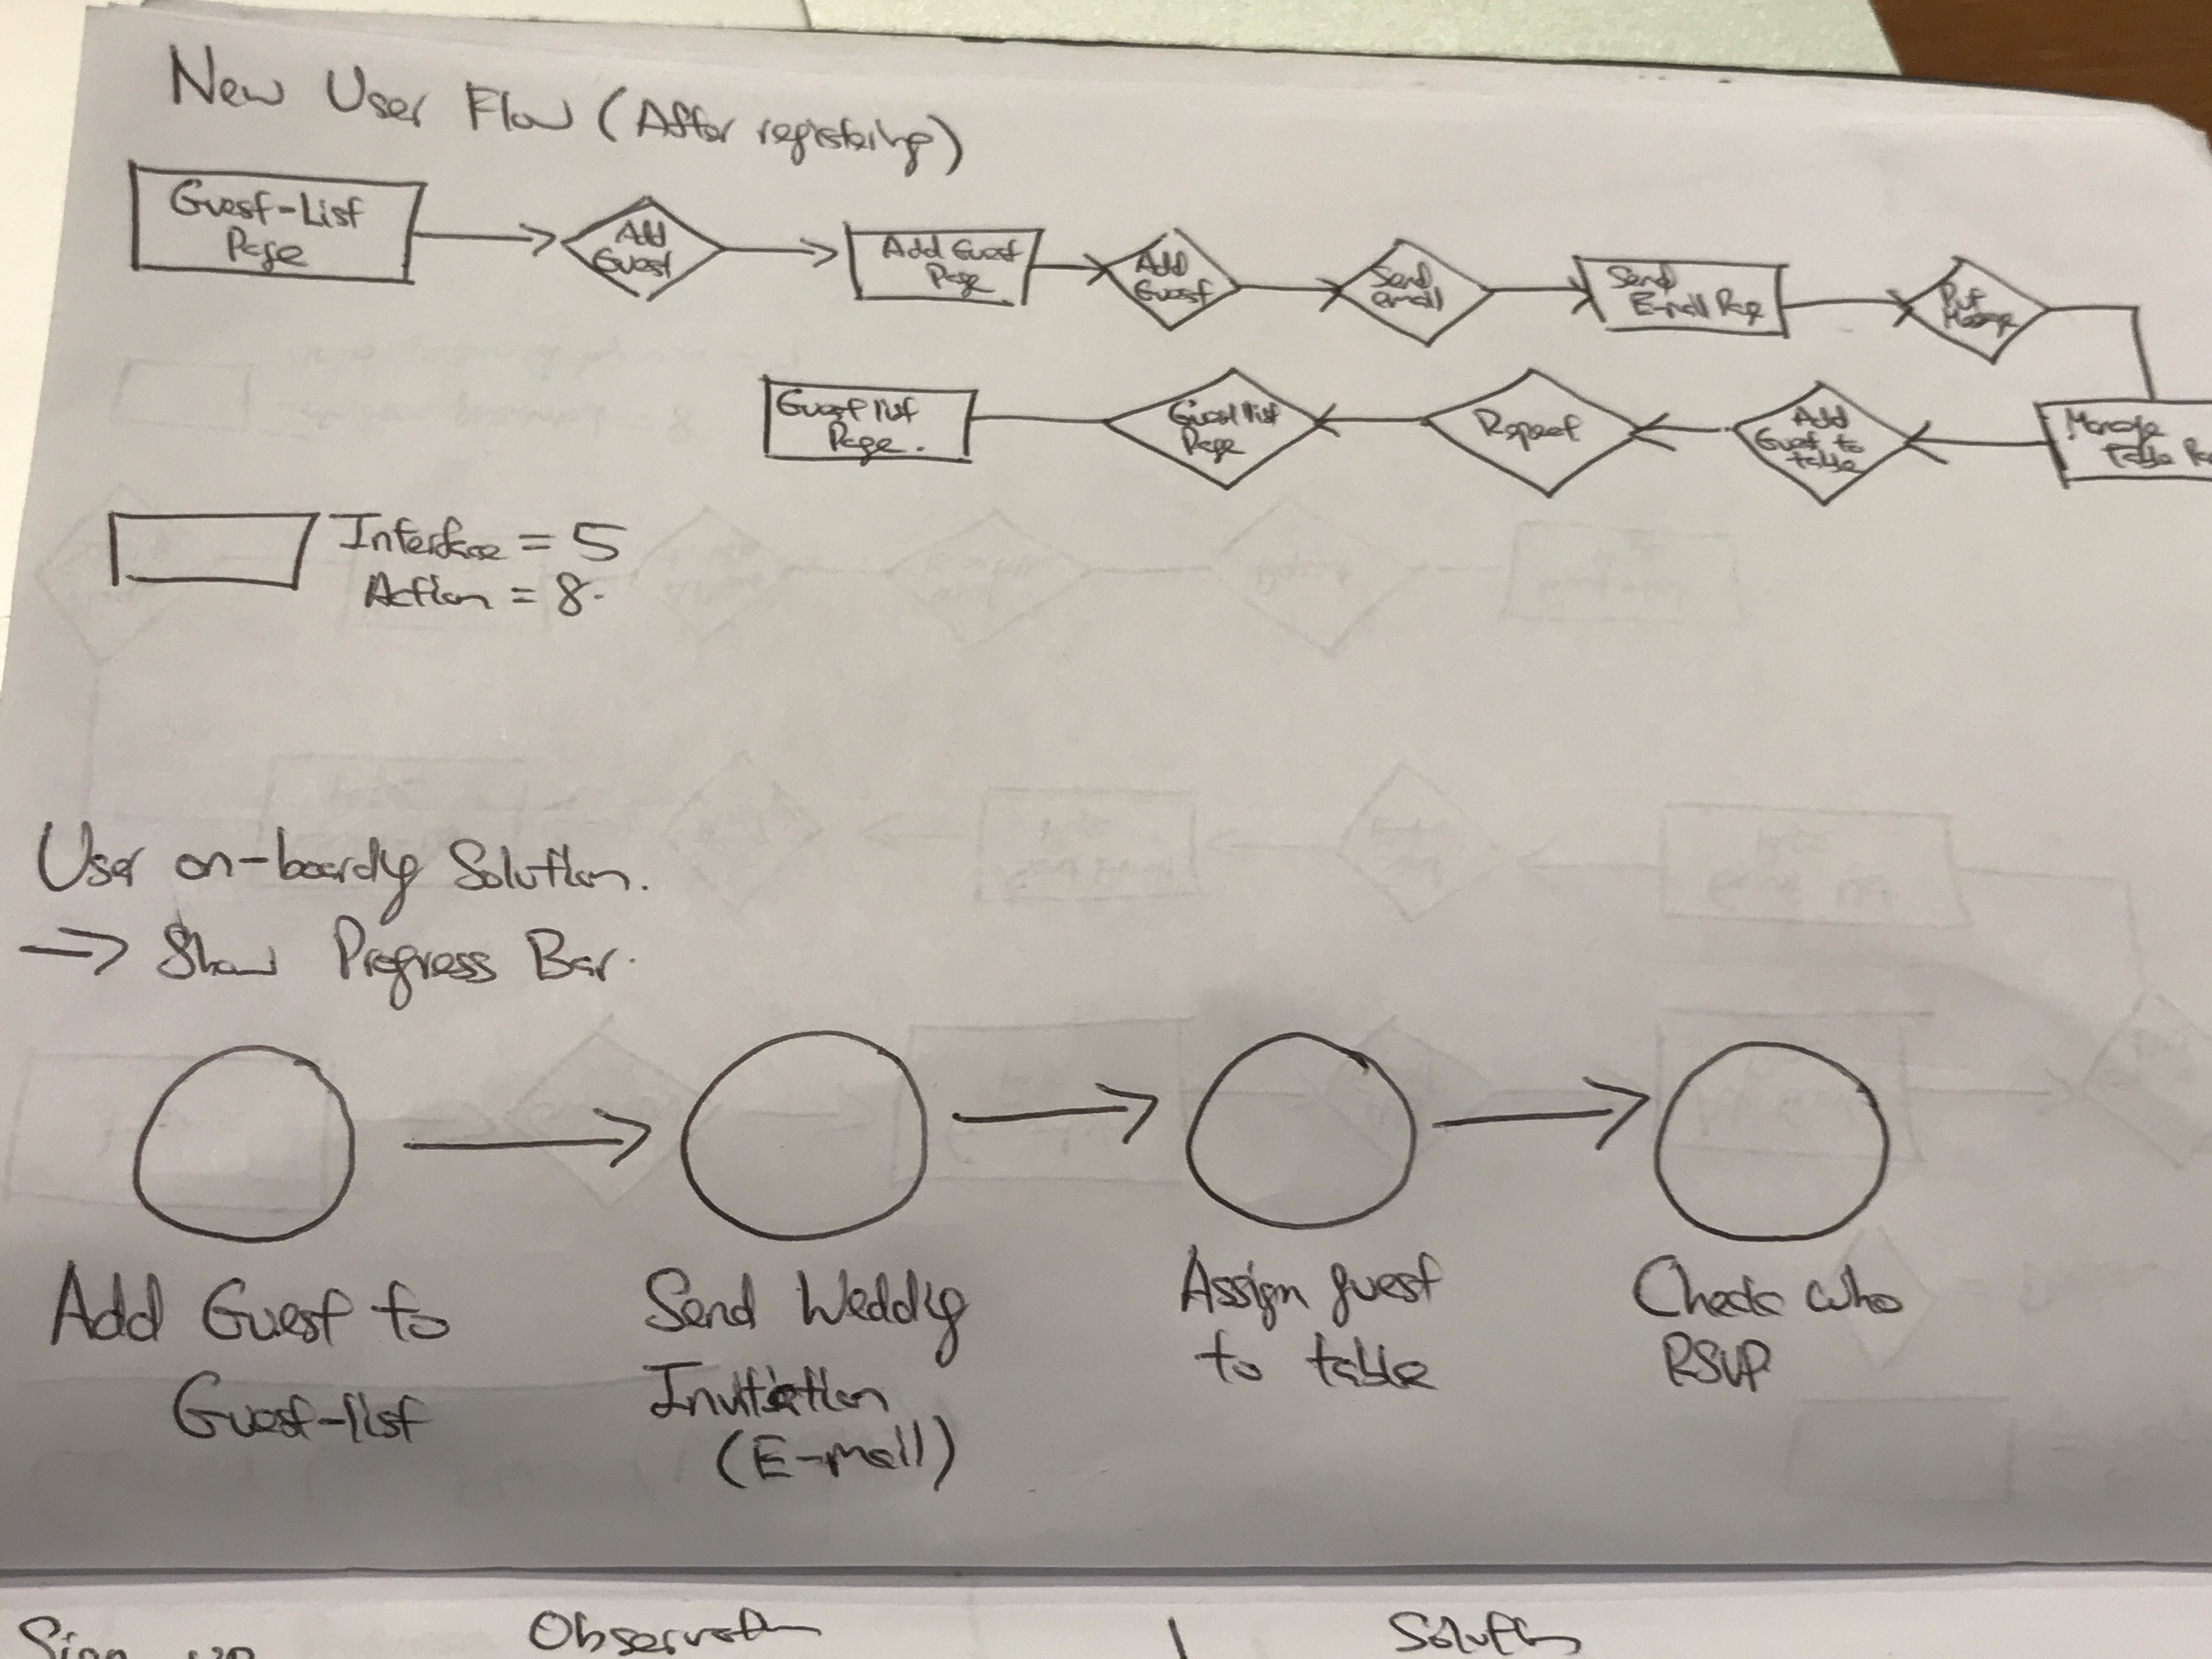 New User Flow (After registering)
Guest-List
Page
Add
Guest
Add Guest
Page
Add
Guest
Send
email
Send
E-mail Page
Put
Manage
Table
Add
Guest to
table
Repeat
Guest list
Page
Guest list
Page.
Interface = 5
Action = 8.
User on-boarding Solution.
⇒ Show Progress Bar.
Add Guest to
Guest-list
Send Wedding
Invitation
(E-mail)
Assign guest
to table
Check who
RSVP
Sign up
Observation
Solution